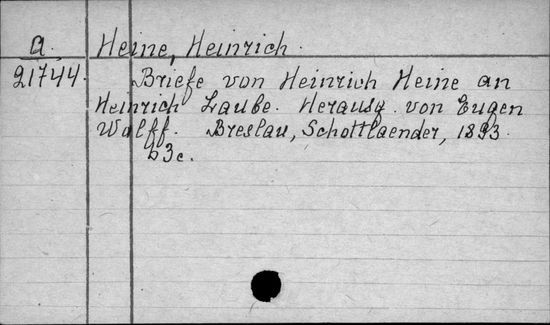 a. Heine, Heinrich.
21744. Briefe von Heinrich Heine an
Heinrich Laube. Herausg. von Eugen
Wolff. Breslau, Schottlaender, 1893.
63c.